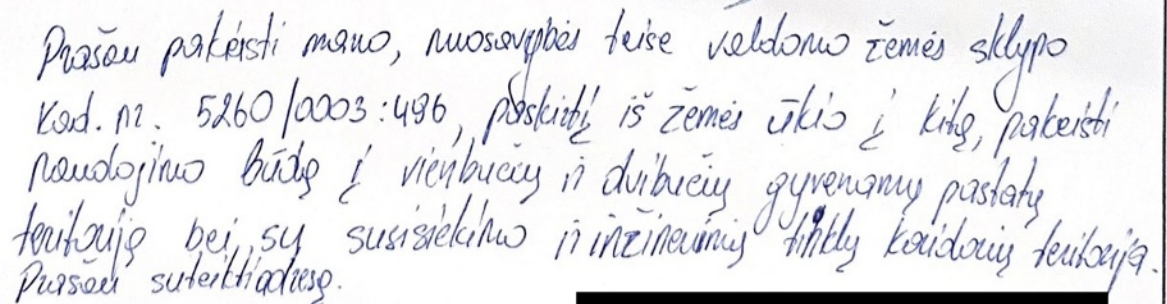 Prašau pakeisti mano, nuosavybės teise valdomo žemės sklypo
Kad. nr. 5260/0003:496, paskirtį iš žemės ūkio į kitą, pakeisti
naudojimo būdą į vienbučių ir dvibučių gyvenamų pastatų
teritoriją bei, su susisiekimo ir inžinerinių tinklų koridorių teritorija.
Prašau suteikti adresą.